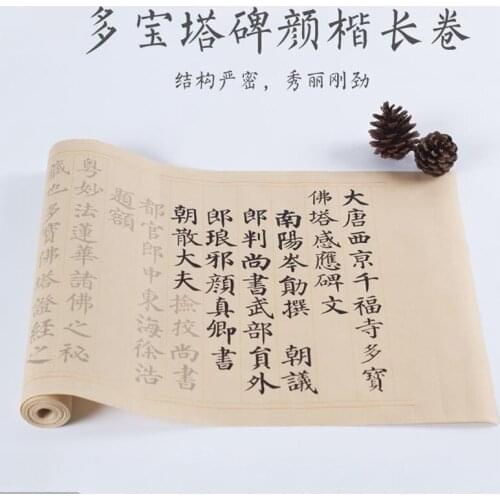 多宝塔碑颜楷长卷
结构严密，秀丽刚劲
大唐西京千福寺多寶
佛塔感應碑文
南陽岑勛撰 朝議
郎判尚書武部貟外
郎琅邪顏真卿書
朝散大夫撿挍尚書
都官郎中東海徐浩
題額
粵妙法蓮華諸佛之秘
藏也多寶佛塔證經之